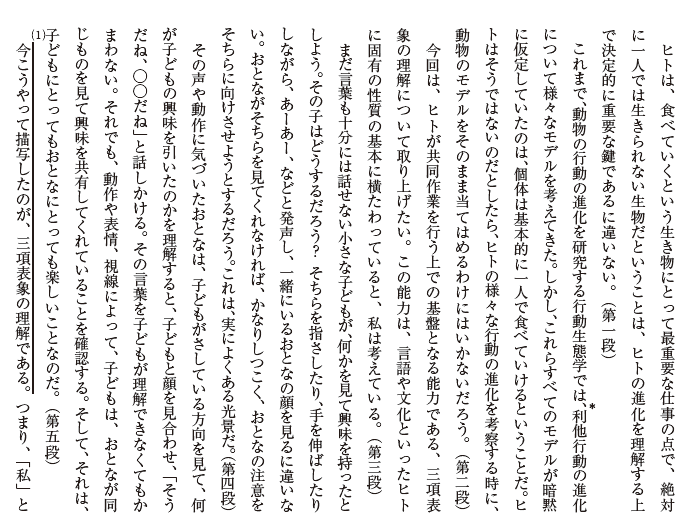 ヒトは、食べていくという生き物にとって最重要な仕事の点で、絶対
に一人では生きられない生物だということは、ヒトの進化を理解する上
で決定的に重要な鍵であるに違いない。（第一段）
これまで、動物の行動の進化を研究する行動生態学では、利他行動の進化*
について様々なモデルを考えてきた。しかし、これらすべてのモデルが暗黙
に仮定していたのは、個体は基本的に一人で食べていけるということだ。ヒ
トはそうではないのだとしたら、ヒトの様々な行動の進化を考察する時に、
動物のモデルをそのまま当てはめるわけにはいかないだろう。（第二段）
今回は、ヒトが共同作業を行う上での基盤となる能力である、三項表
象の理解について取り上げたい。この能力は、言語や文化といったヒト
に固有の性質の基本に横たわっていると、私は考えている。（第三段）
まだ言葉も十分には話せない小さな子どもが、何かを見て興味を持ったと
しよう。その子はどうするだろう？　そちらを指さしたり、手を伸ばしたり
しながら、あーあー、などと発声し、一緒にいるおとなの顔を見るに違いな
い。おとながそちらを見てくれなければ、かなりしつこく、おとなの注意を
そちらに向けさせようとするだろう。これは、実によくある光景だ。（第四段）
その声や動作に気づいたおとなは、子どもがさしている方向を見て、何
が子どもの興味を引いたのかを理解すると、子どもと顔を見合わせ、「そう
だね、○○だね」と話しかける。その言葉を子どもが理解できなくてもか
まわない。それでも、動作や表情、視線によって、子どもは、おとなが同
じものを見て興味を共有してくれていることを確認する。そして、それは、
子どもにとってもおとなにとっても楽しいことなのだ。（第五段）
(1)今こうやって描写したのが、三項表象の理解である。つまり、「私」と